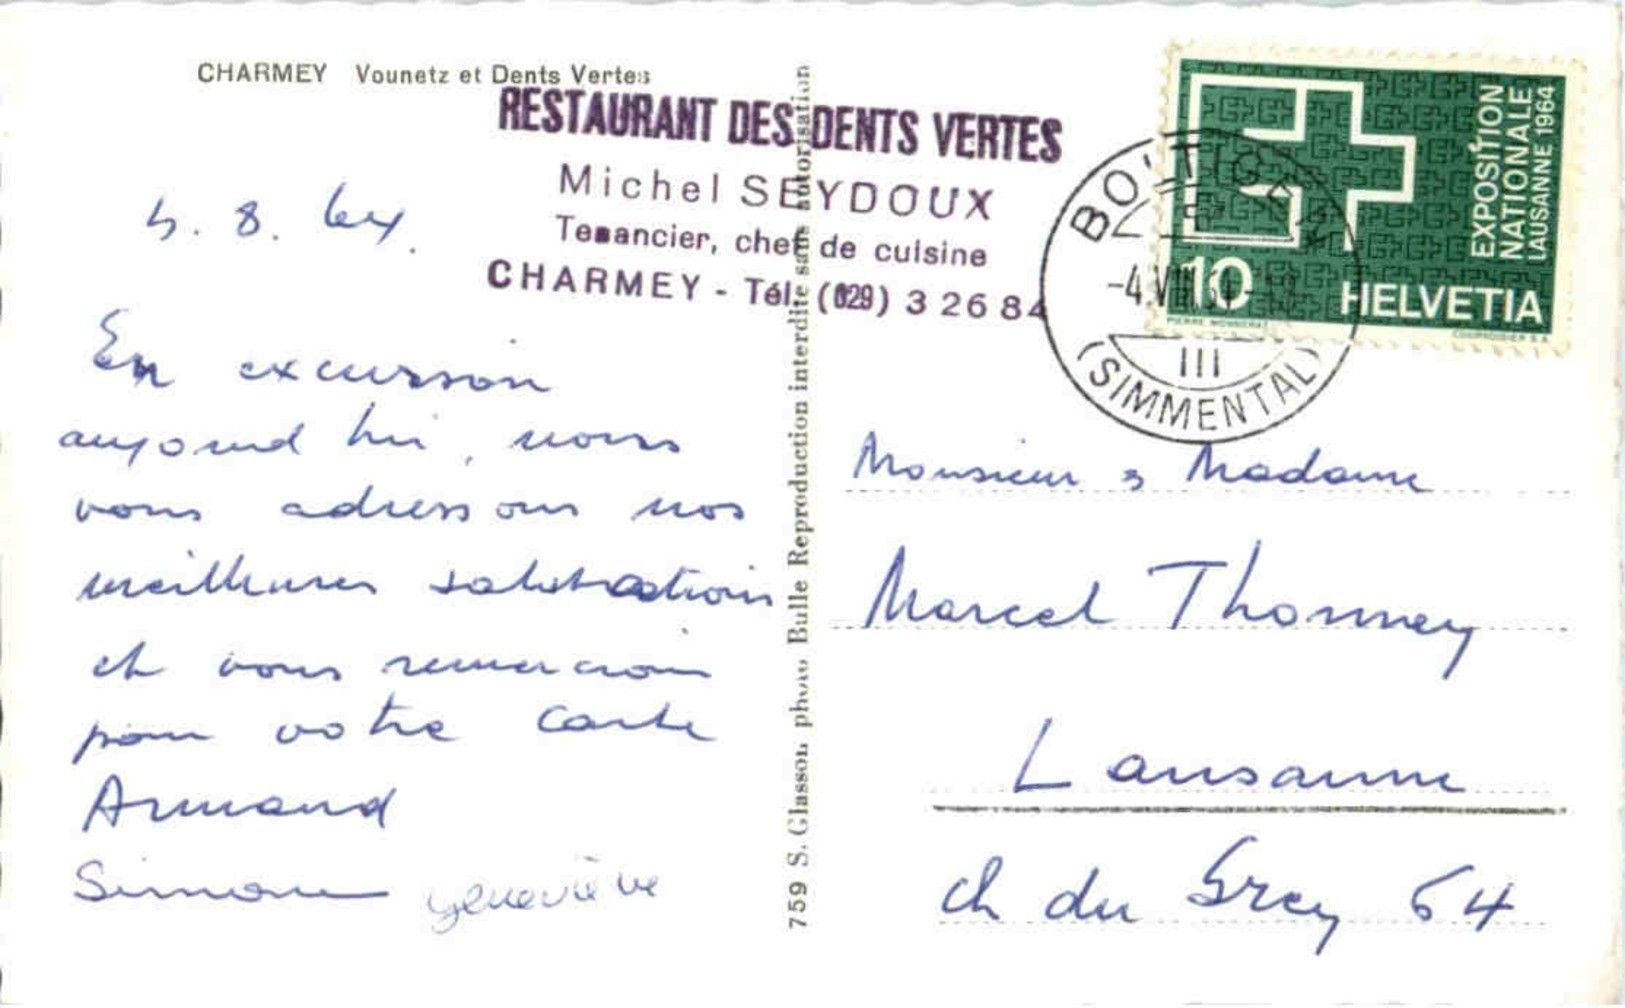 CHARMEY Vounetz et Dents Vertes
RESTAURANT DES DENTS VERTES
Michel SEYDOUX
Tenancier, chef de cuisine
CHARMEY - Tél. (029) 3 26 84
EXPOSITION
NATIONALE
LAUSANNE 1964
10
HELVETIA
PIERRE MONNERAT
COURVOISIER S.A.
BOLTIGEN
-4.VIII.64
III
(SIMMENTAL)
8. 64.
En excursion
aujourd hui, nous
vous adressons nos
meilleures salutations
et vous remercions
pour votre carte
Armand
Simone Geneviève
759 S. Glasson photo Bulle Reproduction interdite sans autorisation
Monsieur & Madame
Marcel Thonney
Lausanne
ch du Grey 64